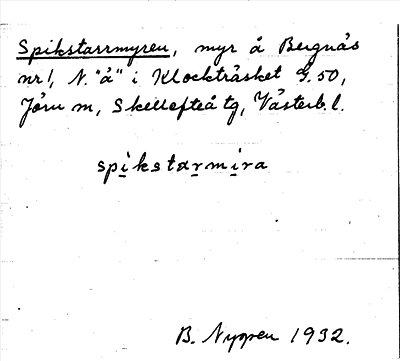 Spikstarrmyren, myr å Bergnäs
nr 1, N. "å" i Klockträsket G. 50,
Jörn m, Skellefteå tg, Västerb. l.
spikstarmira
B. Nygren 1932.